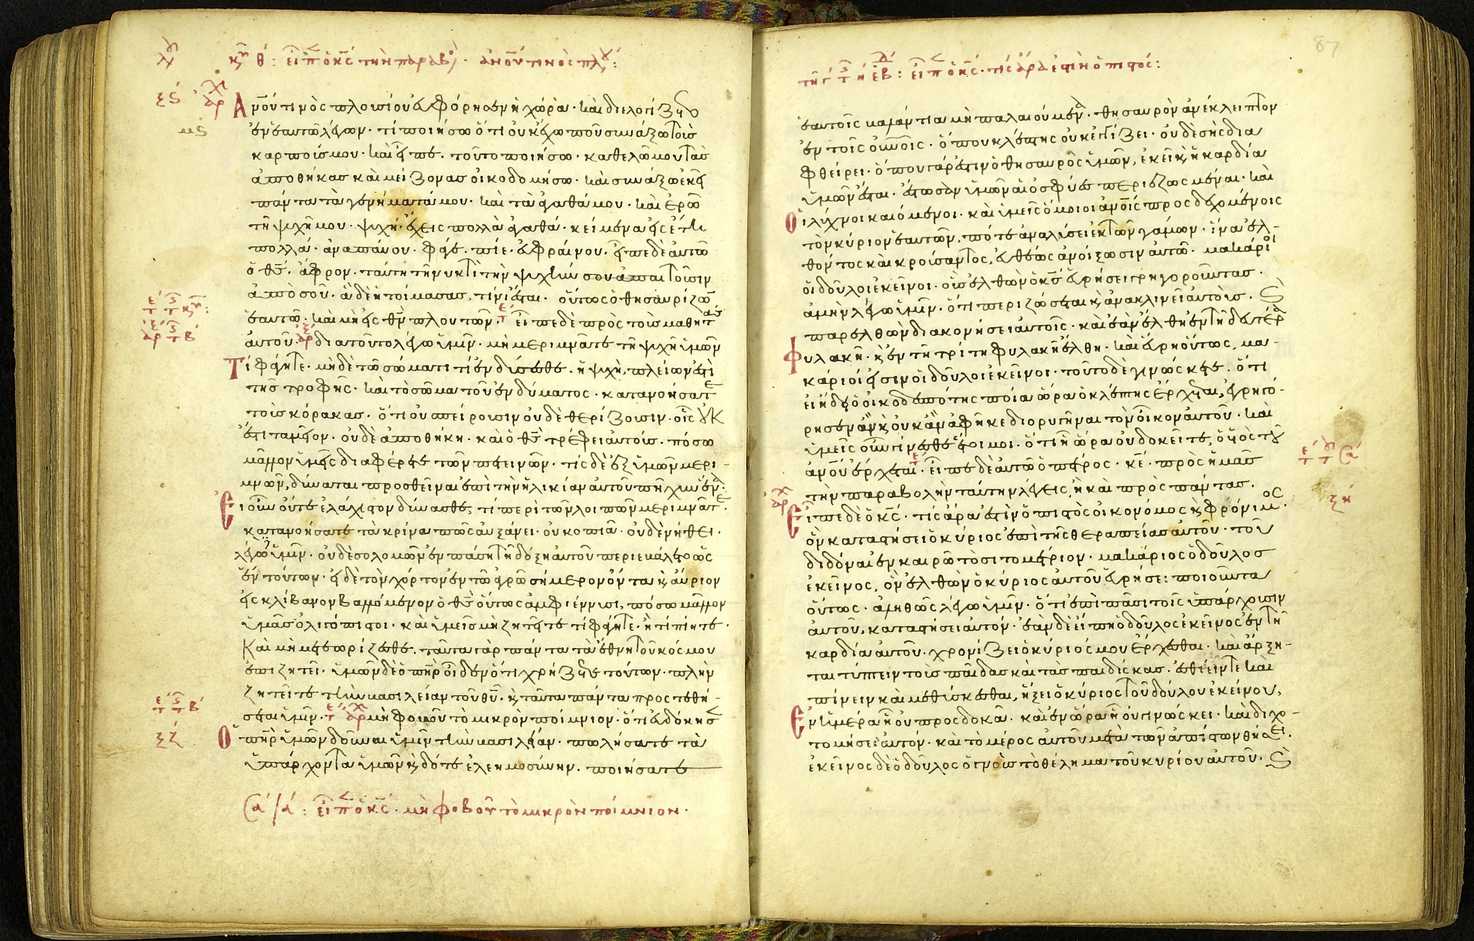 κυ θ: εἶπεν ὁ κς τὴν παραβολήν· ἀνου τινὸς πλου:
Ἀνου τινὸς πλουσίου εὐφόρησεν ἡ χώρα· καὶ διελογίζετο
ἐν ἑαυτῶ λέγων· τί ποιήσω ὅτι οὐκ ἔχω ποῦ συνάξω τοὺς
καρπούς μου· καὶ εἶπε· τοῦτο ποιήσω· καθελῶ μου τὰς
ἀποθήκας καὶ μείζονας οἰκοδομήσω· καὶ συνάξω ἐκεῖ
πάντα τὰ γενήματά μου· καὶ τὰ ἀγαθά μου· καὶ ἐρῶ
τῆ ψυχῆ μου· ψυχή· ἔχεις πολλὰ ἀγαθὰ· κείμενα εἰς ἔτη
πολλά· ἀναπαύου· φάγε· πίε· εὐφραίνου· εἶπε δὲ αὐτῶ
ὁ θς· ἄφρον· ταύτη τῆ νυκτὶ τὴν ψυχήν σου ἀπαιτοῦσιν
ἀπὸ σοῦ· ἃ δὲ ἡτοίμασας, τίνι ἔσται· οὕτως ὁ θησαυρίζων
ἑαυτῶ· καὶ μὴ εἰς θν πλουτῶν· εἶπε δὲ πρὸς τοὺς μαθητὰς
αὐτοῦ· διατοῦτο λέγω ὑμῖν· μὴ μεριμνᾶτε τῆ ψυχῆ ὑμῶν
Τί φάγητε· μηδὲ τῶ σώματι τί ἐνδύσησθε· ἡ ψυχὴ, πλείων ἐστὶ
τῆς τροφῆς· καὶ τὸ σῶμα τοῦ ἐνδύματος· κατανοήσατε
τοὺς κόρακας· ὅτι οὐ σπείρουσιν οὐδὲ θερίζουσιν· οἷς οὐκ
ἔστι ταμεῖον· οὐδὲ ἀποθήκη· καὶ ὁ θς τρέφει αὐτούς· πόσω
μᾶλλον ὑμεῖς διαφέρετε τῶν πετεινῶν· τίς δὲ ἐξ ὑμῶν μερι-
μνῶν, δύναται προσθεῖναι ἐπὶ τὴν ἡλικίαν αὐτοῦ πῆχυν ἕνα·
Εἰ οὖν οὔτε ἐλάχιστον δύνασθε, τί περὶ τῶν λοιπῶν μεριμνᾶτε·
κατανοήσατε τὰ κρίνα πῶς αὐξάνει· οὐ κοπιᾶ· οὐδὲ νήθει·
λέγω ὑμῖν· οὐδὲ σολομὼν ἐν πάση τῆ δόξη αὐτοῦ περιεβάλετο ὡς
ἓν τούτων· εἰ δὲ τὸν χόρτον ἐν τῶ ἀγρῶ σήμερον ὄντα καὶ αὔριον
εἰς κλίβανον βαλλόμενον ὁ θς οὕτως ἀμφιέννυσι, πόσω μᾶλλον
ὑμᾶς ὀλιγόπιστοι· καὶ ὑμεῖς μὴ ζητεῖτε τί φάγητε· ἢ τί πίητε·
Καὶ μὴ μετεωρίζεσθε· ταῦτα γὰρ πάντα τὰ ἔθνη τοῦ κόσμου
ἐπιζητεῖ· ὑμῶν δὲ ὁ πηρ οἶδεν ὅτι χρήζετε τούτων· πλὴν
ζητεῖτε τὴν βασιλείαν τοῦ θυ· καὶ ταῦτα πάντα προστεθή-
σεται ὑμῖν· μὴ φοβοῦ τὸ μικρὸν ποίμνιον· ὅτι εὐδόκησεν
Ὁ πηρ ὑμῶν δοῦναι ὑμῖν τὴν βασιλείαν· πωλήσατε τὰ
ὑπάρχοντα ὑμῶν καὶ δότε ἐλεημοσύνην· ποιήσατε
εἶπεν ὁ κς· μὴ φοβοῦ τὸ μικρὸν ποίμνιον·
εἶπεν ὁ κς· τίς ἄρα ἐστὶν ὁ πιστός:
87
ἑαυτοῖς βαλάντια μὴ παλαιούμενα· θησαυρὸν ἀνέκλειπτον
ἐν τοῖς οὐνοῖς· ὅπου κλέπτης οὐκ ἐγγίζει· οὐδὲ σὴς δια
φθείρει· ὅπου γάρ ἐστιν ὁ θησαυρὸς ὑμῶν, ἐκεῖ καὶ ἡ καρδία
ὑμῶν ἔσται· ἔστωσαν ὑμῶν αἱ ὀσφύες περιεζωσμέναι· καὶ
Οἱ λύχνοι καιόμενοι· καὶ ὑμεῖς ὅμοιοι ἀνοις προσδεχομένοις
τὸν κύριον ἑαυτῶν, πότε ἀναλύσει ἐκ τῶν γάμων· ἵνα ἐλ-
θόντος καὶ κρούσαντος, εὐθέως ἀνοίξωσιν αὐτῶ· μακάριοι
οἱ δοῦλοι ἐκεῖνοι· οὓς ἐλθὼν ὁ κς εὑρήσει γρηγοροῦντας·
ἀμὴν λέγω ὑμῖν· ὅτι περιζώσεται καὶ ἀνακλινεῖ αὐτοὺς· καὶ
παρελθὼν διακονήσει αὐτοῖς· καὶ ἐὰν ἔλθη ἐν τῆ δευτέρα
Φυλακῆ· καὶ ἐν τῆ τρίτη φυλακῆ ἔλθη· καὶ εὕρη οὕτως, μα-
κάριοί εἰσιν οἱ δοῦλοι ἐκεῖνοι· τοῦτο δὲ γινώσκετε· ὅτι
εἰ ἤδει ὁ οἰκοδεσπότης ποία ὥρα ὁ κλέπτης ἔρχεται, ἐγρηγό-
ρησεν ἂν καὶ οὐκ ἂν ἀφῆκε διορυγῆναι τὸν οἶκον αὐτοῦ· καὶ
ὑμεῖς οὖν γίνεσθε ἕτοιμοι· ὅτι ἧ ὥρα οὐ δοκεῖτε, ὁ υἱὸς τοῦ
ἀνου ἔρχεται· εἶπε δὲ αὐτῶ ὁ πέτρος· κε· πρὸς ἡμᾶς
τὴν παραβολὴν ταύτην λέγεις, ἢ καὶ πρὸς πάντας·
Εἶπε δὲ ὁ κς· τίς ἄρα ἐστὶν ὁ πιστὸς οἰκονόμος καὶ φρόνιμος·
ὃν καταστήσει ὁ κύριος ἐπὶ τῆς θεραπείας αὐτοῦ· τοῦ
διδόναι ἐν καιρῶ τὸ σιτομέτριον· μακάριος ὁ δοῦλος
ἐκεῖνος, ὃν ἐλθὼν ὁ κύριος αὐτοῦ εὑρήσει ποιοῦντα
οὕτως· ἀληθῶς λέγω ὑμῖν· ὅτι ἐπὶ πᾶσι τοῖς ὑπάρχουσιν
αὐτοῦ, καταστήσει αὐτόν· ἐὰν δὲ εἴπη ὁ δοῦλος ἐκεῖνος ἐν τῆ
καρδία αὐτοῦ· χρονίζει ὁ κύριός μου ἔρχεσθαι· καὶ ἄρξη-
ται τύπτειν τοὺς παῖδας καὶ τὰς παιδίσκας· ἐσθίειν τε καὶ
πίνειν καὶ μεθύσκεσθαι, ἥξει ὁ κύριος τοῦ δούλου ἐκείνου,
Ἐν ἡμέρα ἧ οὐ προσδοκᾶ· καὶ ἐν ὥρα ἧ οὐ γινώσκει· καὶ διχο-
τομήσει αὐτόν· καὶ τὸ μέρος αὐτοῦ μετὰ τῶν ἀπίστων θήσει·
ἐκεῖνος δὲ ὁ δοῦλος ὁ γνοὺς τὸ θέλημα τοῦ κυρίου αὐτοῦ· καὶ